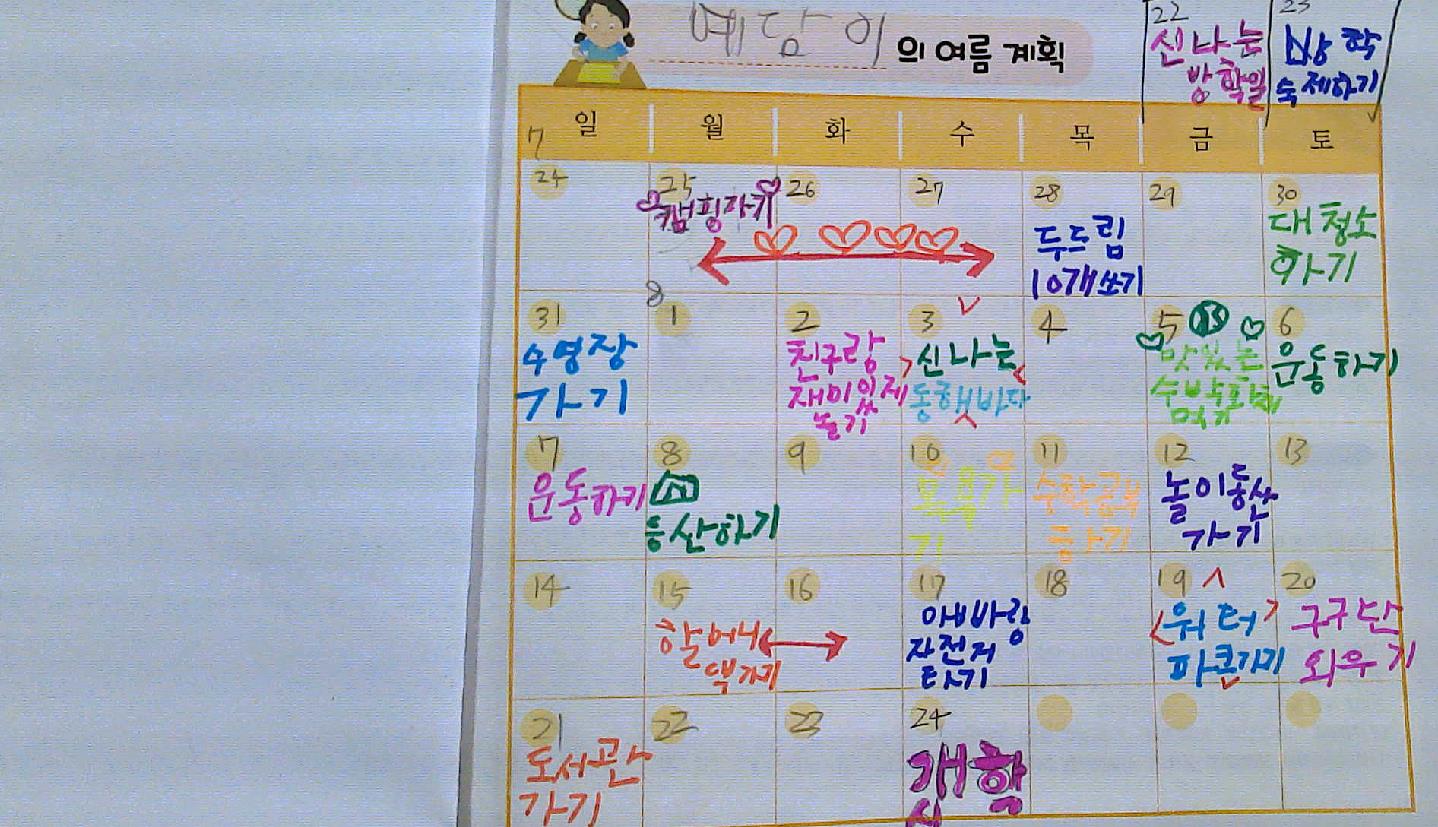 예담이 의 여름 계획
22 23
신나는 방학
방학일 숙제하기
일 월 화 수 목 금 토
7
24 25 26 27 28 29 30
캠핑하기
두드림
10개쓰기
대청소
하기
8
31 1 2 3 4 5 6
수영장
가기
친구랑
재미있제
놀기
신나는
동햇바다
맛있는
수박
먹기
운동하기
7 8 9 10 11 12 13
운동하기
등산하기
목욕가
기
수학공부
하기
놀이동산
가기
14 15 16 17 18 19 20
할머니
댁가기
아빠랑
자전거
타기
워터
파크가기
구구단
외우기
21 22 23 24
도서관
가기
개학